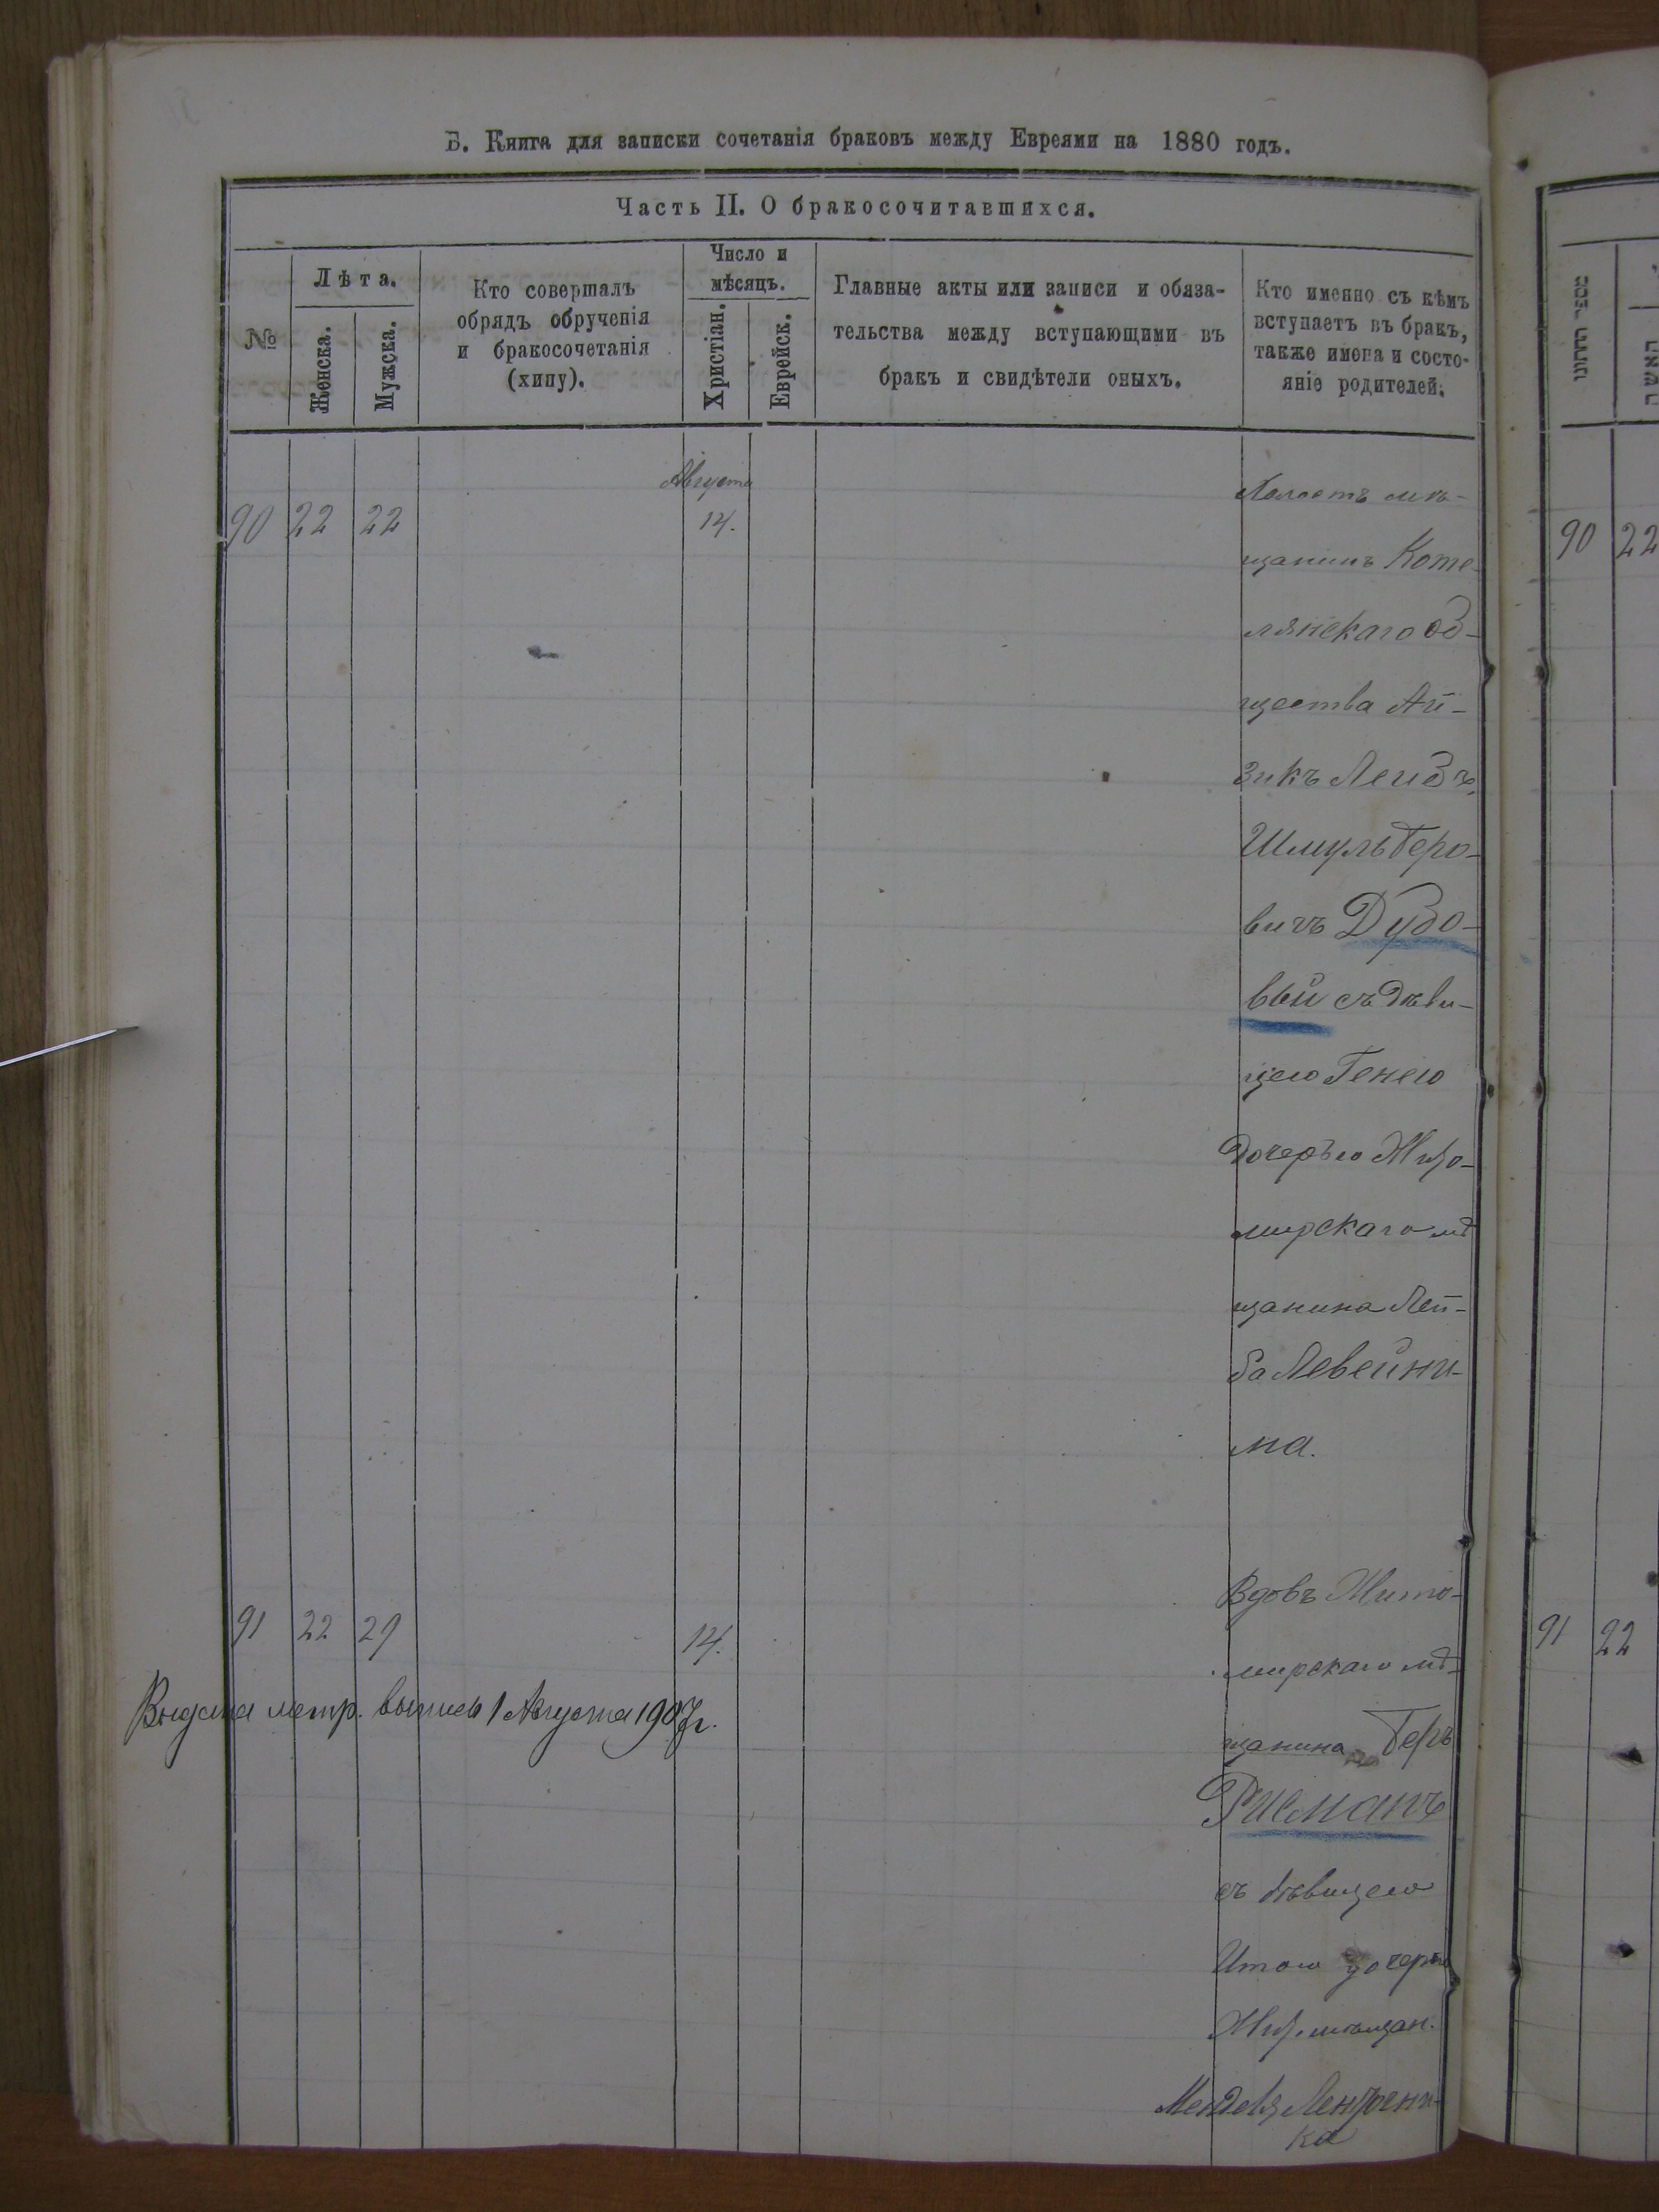 Б. Книга для записки сочетанія браковъ между Евреями на 1880 годъ.
Часть II. О бракосочитавшихся.
№
Лѣта.
Женска.
Мужска.
Кто совершалъ
обрядъ обрученія
и бракосочетанія
(хипу).
Число и
мѣсяцъ.
Христіан.
Еврейск.
Главные акты или записи и обяза-
тельства между вступающими въ
бракъ и свидѣтели оныхъ.
Кто именно съ кѣмъ
вступаетъ въ бракъ,
также имена и состо-
яніе родителей.
Августа
90 22 22 14.
Холостъ мѣ-
щанинъ Коте-
лянскаго об-
щества Ай-
зикъ Лейбъ
Шмуль Беро-
вичъ Дубо-
вый съ дѣви-
цею Генею
дочерью Жито-
мирскаго мѣ
щанина Лей-
ба Левейни-
ма.
91 22 29 14.
Вдовъ Жито-
мирскаго мѣ-
щанина Беръ
съ дѣвицею
Итою дочерью
Жит. мѣщан.
Менделя
ка
Выдана метр. выпись 1 Августа 1907г.
מספר החתונו
האשה
90 22
91 22